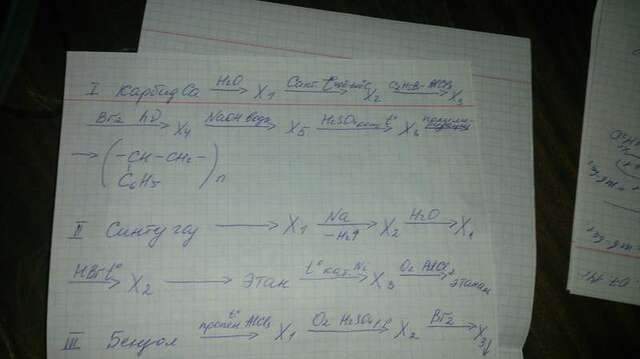 I Карбид Ca H2O → X1 Синт. t° → X2 C2H5Br AlCl3 → X3
Br2 hν → X4 NaOH водн → X5 H2SO4 конц t° → X6
→ (-CH-CH2-)n
C6H5
II Синтез газ → X1 Na -H2↑ → X2 H2O → X1
HBr t° → X2 → этан t° кат. Ni → X3 O2 → этаналь
III Бензол t° пропен AlCl3 → X1 O2 H2SO4 t → X2 Br2 → X3↓